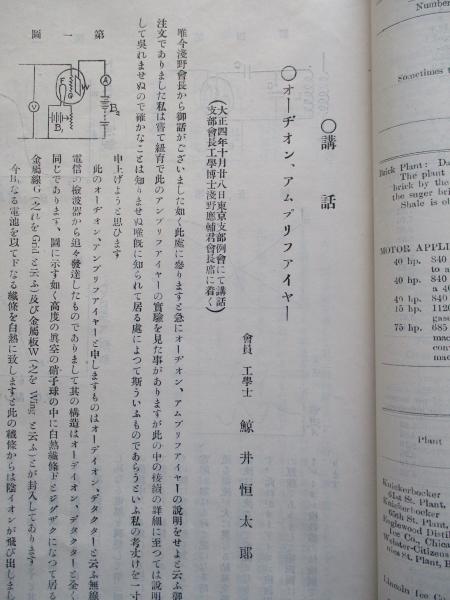 ○講話
○オーヂオン、アムプリファイヤー
(大正四年十月廿八日東京支部例會にて講話
支部會長工學博士淺野應輔君會長席に着く)
會員 工學士 鯨井恒太郎
唯今淺野會長から御話がございました如く此處に參りますと急にオーヂオン、アムプリファイヤーの說明をせよと云ふ御
注文でありました私は嘗て紐育で此のアンプリファイヤーの實驗を見た事がありますが此の中の接續の詳細に至つては說明
して吳れませぬので確かなことは知りませぬ唯既に知られて居る處によつて斯ういふものであらうといふ私の考丈けを一寸
申上げようと思ひます
此のオーヂオン、アンプリファイヤーと申しますものはオーデイオン、デタクターと云ふ無線
電信の檢波器から追々發達したものでありまして其の構造はオーデイオン、デタクターと全く
同じであります、圖に示す如く高度の眞空の硝子球の中に白熱纖條Fとジグザクになつて居る
金屬線G(之れを Grid と云ふ)及び金屬板W(之を Wing と云ふ)とが封入してあります
今B₁なる電池を以てFなる纖條を白熱に致しますと此の纖條からは陰イオンが飛び出しま
第一圖
V
F
G
W
A
B₁
B₂
Number
Sometimes t
Brick Plant: Da
The plant
brick by the
the auger bri
Shale is o
MOTOR APPLI
40 hp. 840
to a
40 hp. 840
a 40
40 hp. 840
15 hp. 1120
gaso
75 hp. 685
mac
con
mac
Plant
Knickerbocker
61st St. Plant,
Knickerbocker
65th St. Plant,
Englewood Distil
Ice Co., Chica
Webster-Citizens
nies St. Plant, B
Lincoln Ice C